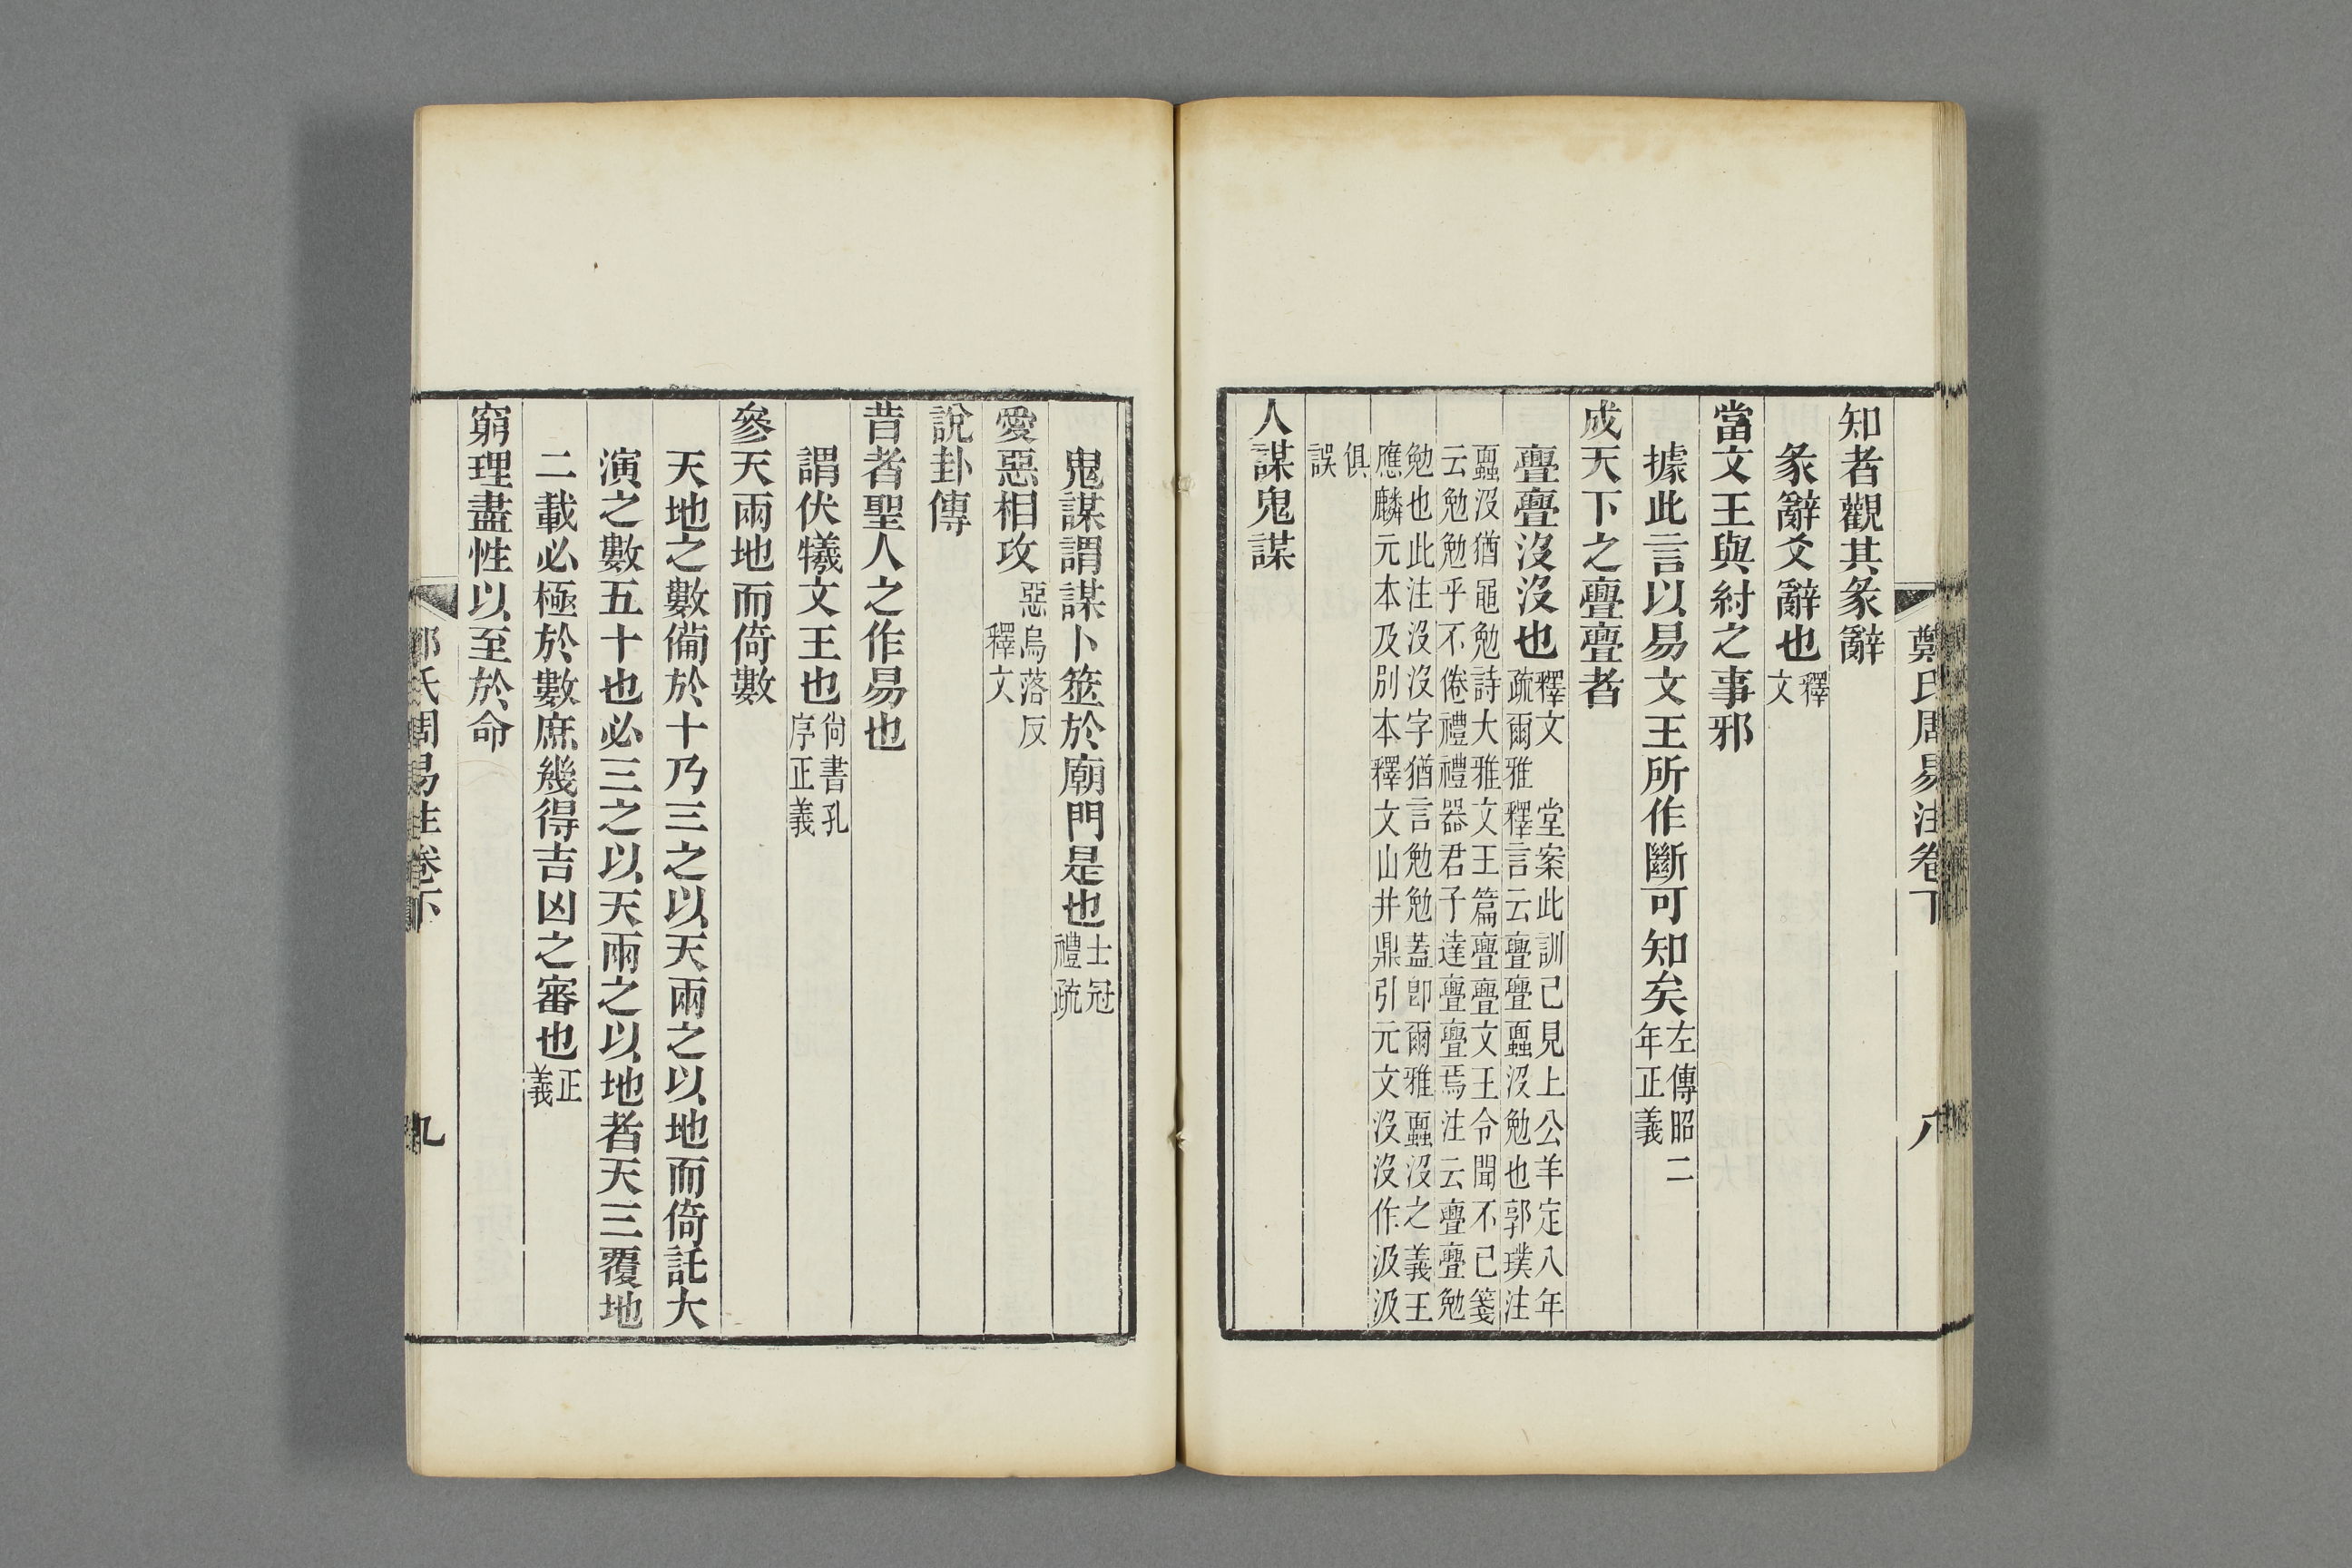 鄭氏周易注卷下
八
知者觀其彖辭
彖辭爻辭也釋文
當文王與紂之事邪
據此言以易文王所作斷可知矣左傳昭二年正義
成天下之亹亹者
亹亹沒沒也釋文
疏爾雅
堂案此訓已見上公羊定八年
釋言云亹亹蠠沒勉也郭璞注
蠠沒猶黽勉詩大雅文王篇亹亹文王令聞不已箋
云勉勉乎不倦禮禮器君子達亹亹焉注云亹亹勉
勉也此注沒沒字猶言勉勉蓋卽爾雅蠠沒之義王
應麟元本及別本釋文山井鼎引元文沒沒作汲汲
俱
誤
人謀鬼謀
鬼謀謂謀卜筮於廟門是也士冠禮疏
愛惡相攻惡烏落反釋文
說卦傳
昔者聖人之作易也
謂伏犧文王也尙書孔序正義
參天兩地而倚數
天地之數備於十乃三之以天兩之以地而倚託大
演之數五十也必三之以天兩之以地者天三覆地
二載必極於數庶幾得吉凶之審也正義
窮理盡性以至於命
鄭氏周易注卷下
九